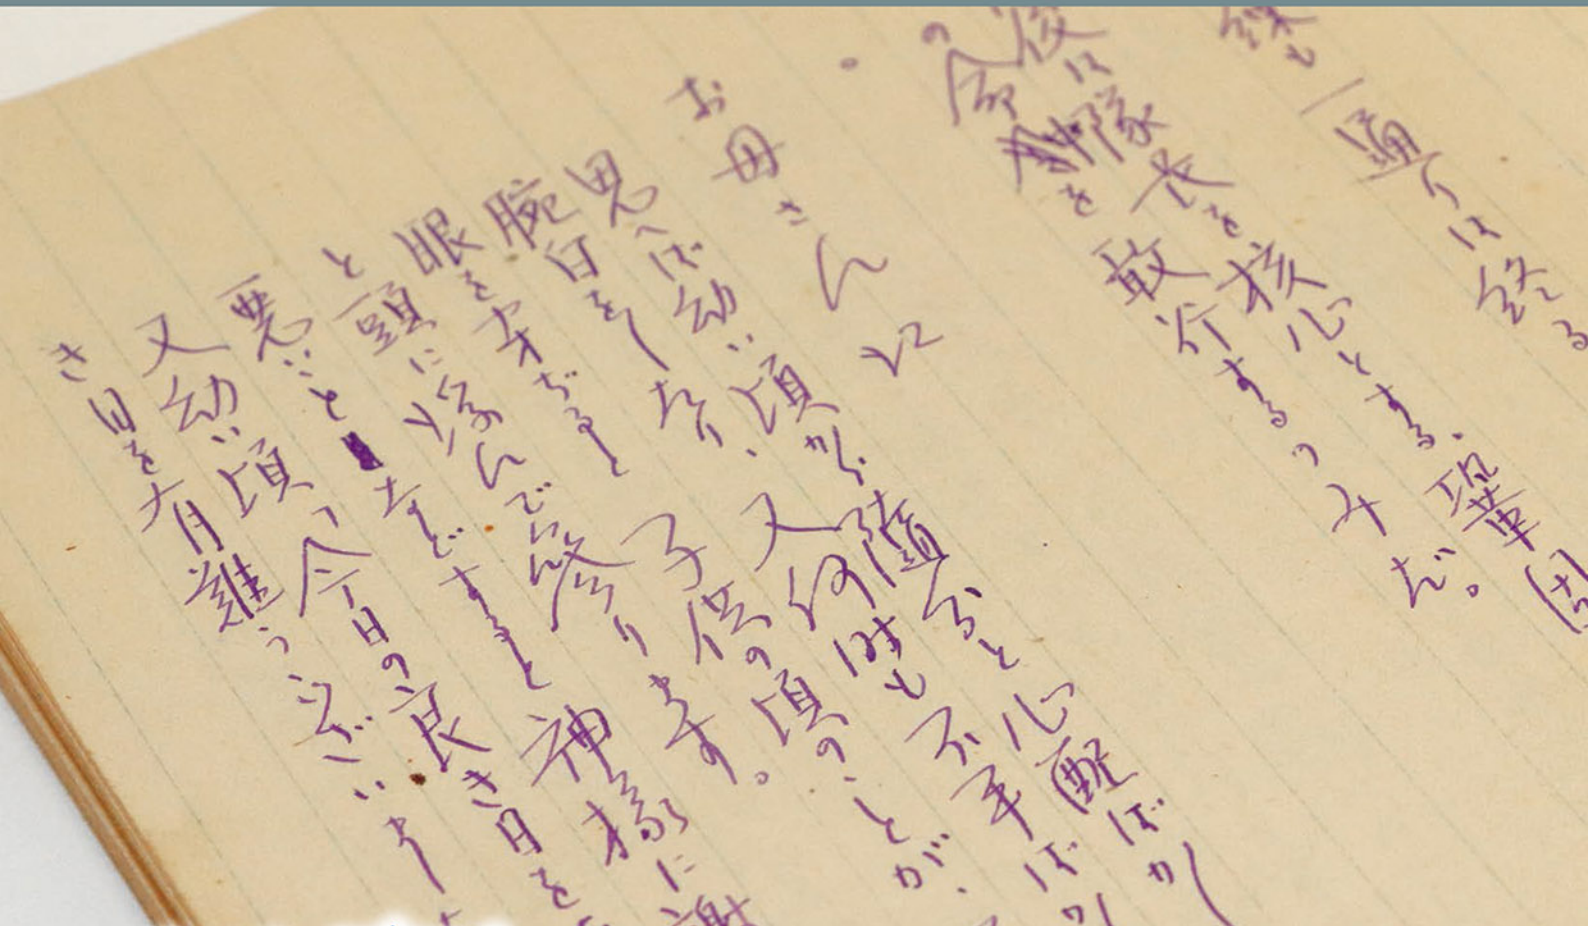 も一通りは終る
後は隊長を核心とする、鞏固
の命 を敢行するのみだ。
お母さんに
思へば幼い頃から随分と心配ばかし
腕白をしたり、又何時も不平ばかり
眼を ぢると 子供の頃のことが、
と頭に浮んで 参ります。
悪いこと などすると神様に謝
又幼い頃、「今日の良き日を
き日を有難うございまし